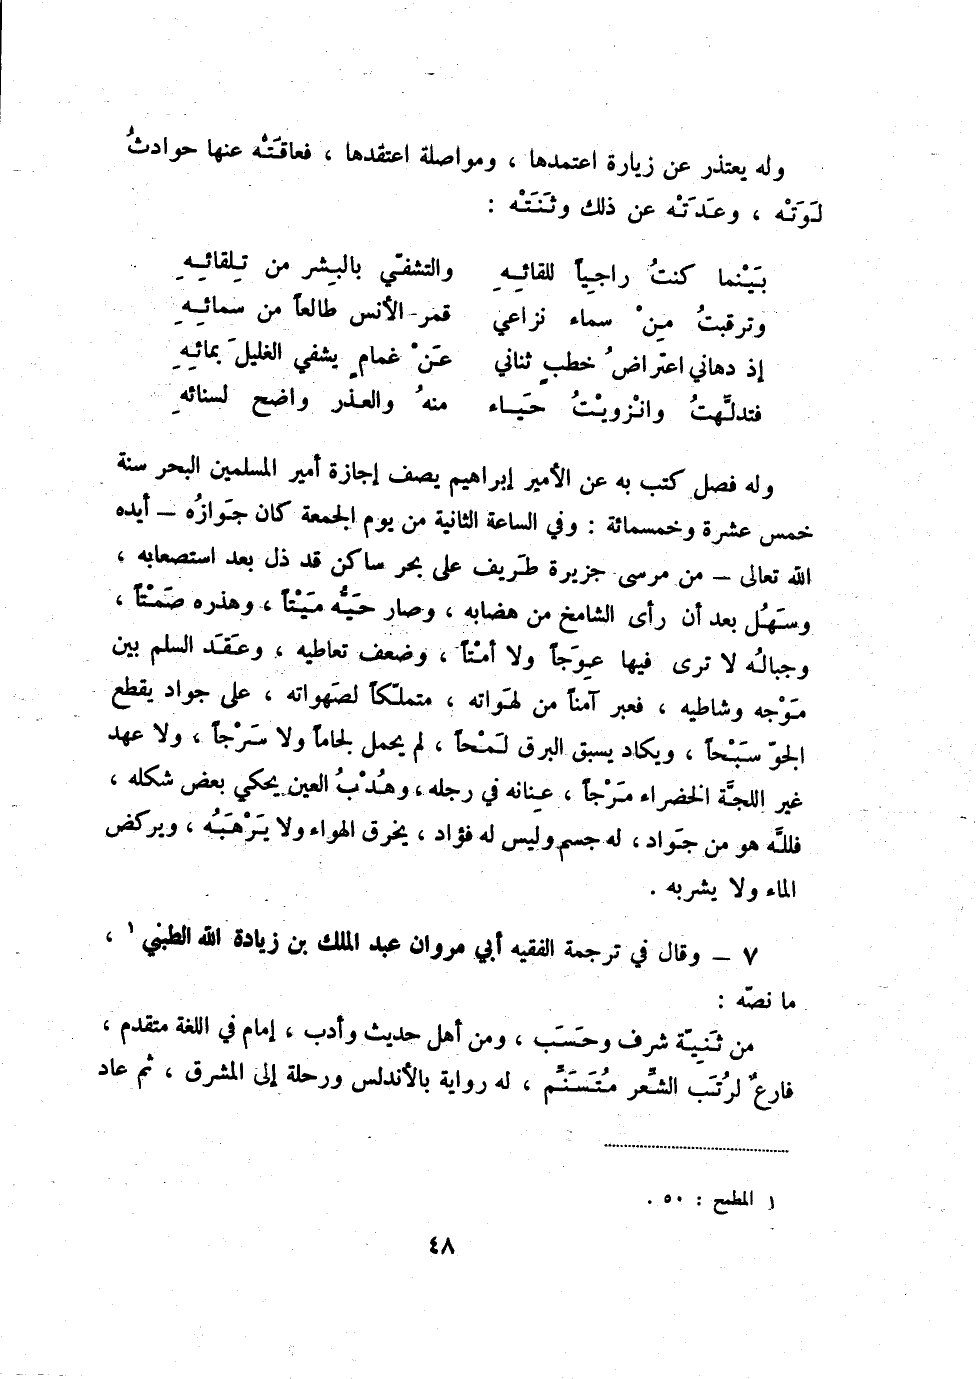 وله يعتذر عن زيارة اعتمدها ، ومواصلة اعتقدها ، فعاقَتْه عنها حوادثُ
لَوَتْه ، وعَدَتْه عن ذلك وثَنَتْه :
بَيْنما كنتُ راجِياً للقائِهِ والتشفّي بالبِشر من تِلقائِهِ
وترقبتُ مِنْ سماء نزاعي قمر الأنس طالعاً من سمائِهِ
إذ دهاني اعتراضُ خطبٍ ثناني عَنْ غمامٍ يشفي الغليلَ بمائِهِ
فتدلَّهتُ وانْزويْتُ حَيَاء منهُ والعذر واضح لسنائه
وله فصل كتب به عن الأمير إبراهيم يصف إجازة أمير المسلمين البحر سنة
خمس عشرة وخمسمائة : وفي الساعة الثانية من يوم الجمعة كان جَوازُه – أيده
الله تعالى – من مرسى جزيرة طَريف على بحر ساكن قد ذل بعد استصعابه ،
وسَهُل بعد أن رأى الشامخ من هضابه ، وصار حَيُّه مَيْتاً ، وهذره صَمْتاً ،
وجبالُه لا ترى فيها عِوَجاً ولا أمْتاً ، وضعف تعاطيه ، وعَقَد السلم بين
مَوْجه وشاطيه ، فعبر آمناً من لهَواته ، متملّكاً لصَهواته ، على جواد يقطع
الجوّ سَبْحاً ، ويكاد يسبق البرق لَمْحاً ، لم يحمل لجاماً ولا سَرْجاً ، ولا عهد
غير اللجَّة الخضراء مَرْجاً ، عِنانه في رجله ، وهُدْبُ العين يحكي بعض شكله ،
فللَّه هو من جَواد ، له جسم وليس له فؤاد ، يخرق الهواء ولا يَرْهَبُه ، ويركض
الماء ولا يشربه .
٧ – وقال في ترجمة الفقيه أبي مروان عبد الملك بن زيادة الله الطبني ١ ،
ما نصّه :
من ثَنِيّة شرف وحَسَب ، ومن أهل حديث وأدب ، إمام في اللغة متقدم ،
فارعٌ لرُتَب الشَّعر مُتَسَنَّم ، له رواية بالأندلس ورحلة إلى المشرق ، ثم عاد
١ المطمح : ٥٠ .
٤٨